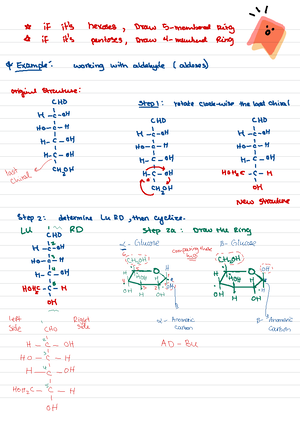 * if it's hexoses, Draw 5-membered Ring
* if it's pentoses, Draw 4-membered Ring
Example: working with aldehyde (aldoses)
original structure:
CHO
H-C-OH
HO-C-H
H-C-OH
H-C-OH
CH2OH
last chiral
Step 1: rotate clock-wise the last chiral
CHO
H-C-OH
HO-C-H
H-C-OH
H-C-OH
CH2OH
CHO
H-C-OH
HO-C-H
H-C-OH
HOH2C-C-H
OH
New structure
Step 2: determine LU RD, then cyclize.
LU RD
CHO
H-C-OH
HO-C-H
H-C-OH
HOH2C-C-H
OH
Step 2a: Draw the Ring
α-Glucose
β-Glucose
CH2OH
CH2OH
α-Anomeric carbon
β-Anomeric carbon
Left Side
Right Side
CHO
H-C-OH
HO-C-H
H-C-OH
HOH2C-C-H
OH
AD-BU